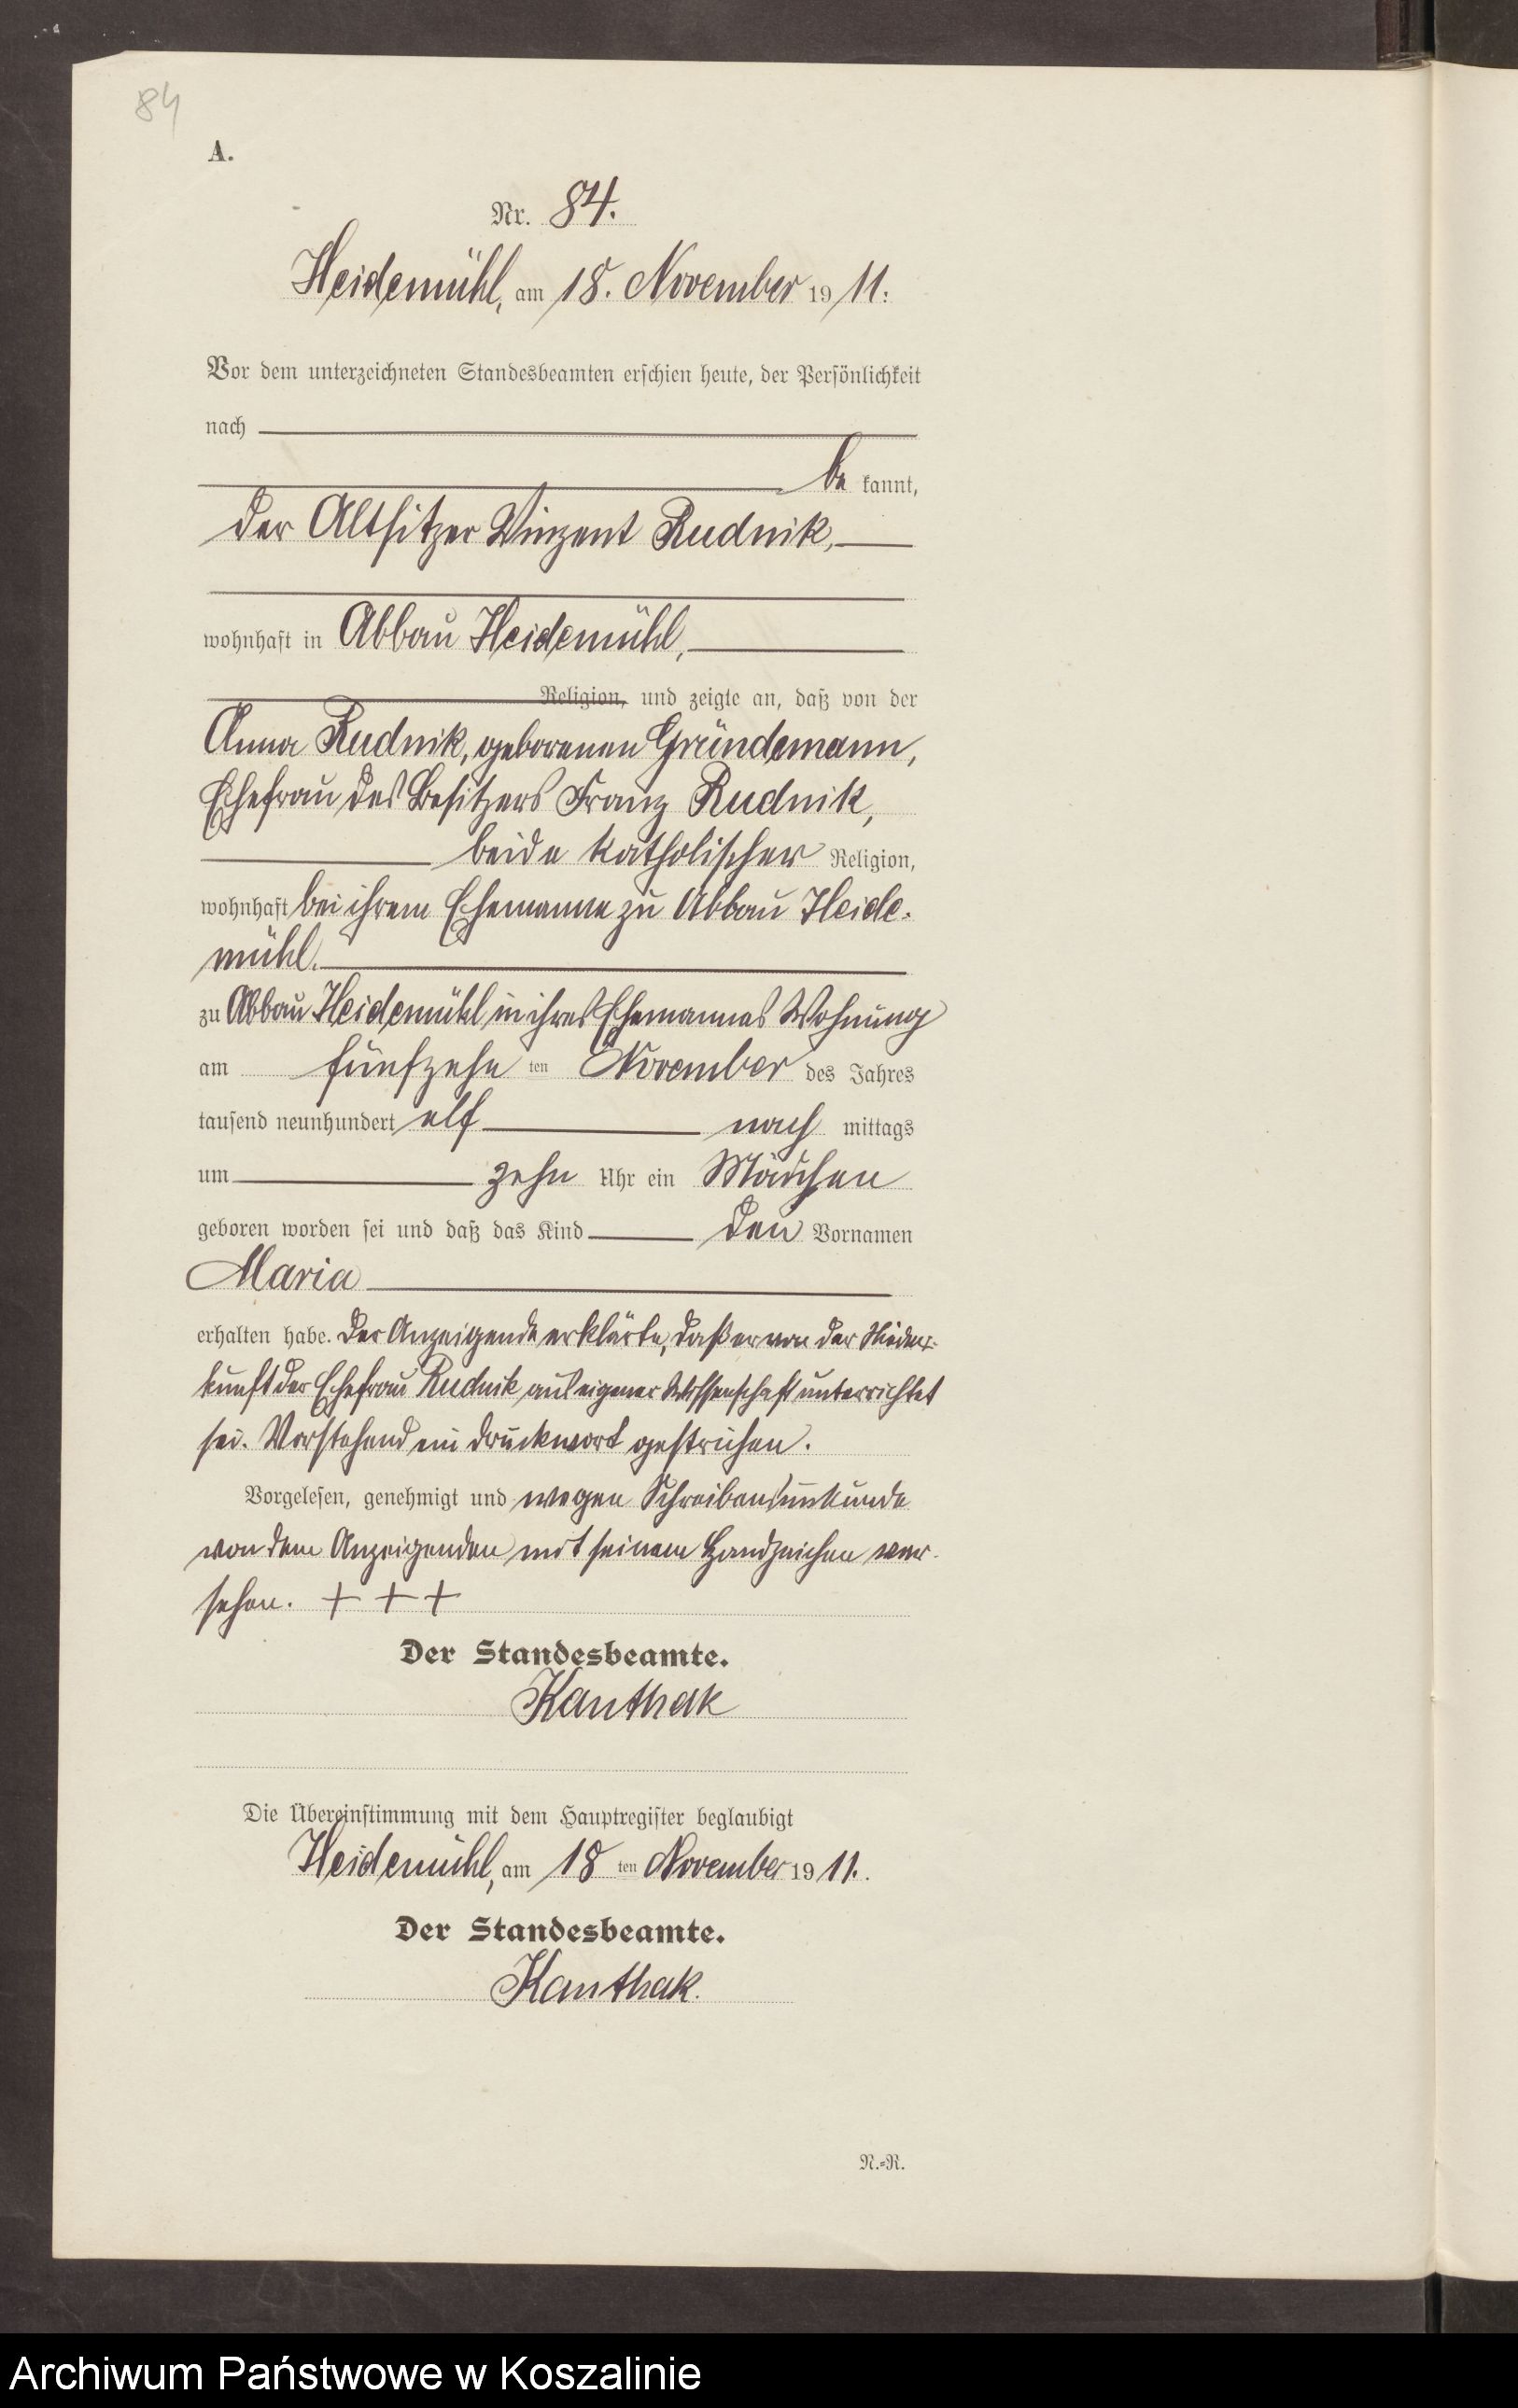 84
A.
Nr. 84.
Heidemühl, am 18. November 1911.
Vor dem unterzeichneten Standesbeamten erschien heute, der Persönlichkeit
nach
be kannt,
der Altsitzer Vinzent Rudnik,
wohnhaft in Abbau Heidemühl,
Religion, und zeigte an, daß von der
Anna Rudnik, geborenen Gründemann,
Ehefrau des Besitzers Franz Rudnik,
beide katholischer Religion,
wohnhaft bei ihrem Ehemanne zu Abbau Heide-
mühl.
zu Abbau Heidemühl in ihres Ehemannes Wohnung
am fünfzehn ten November des Jahres
tausend neunhundert elf nach mittags
um zehn Uhr ein Mädchen
geboren worden sei und daß das Kind den Vornamen
Maria
erhalten habe. Der Anzeigende erklärte, daß er von der Nieder-
kunft der Ehefrau Rudnik aus eigener Wissenschaft unterrichtet
sei. Vorstehend ein Druckwort gestrichen.
Vorgelesen, genehmigt und wegen Schreibensunkunde
von dem Anzeigenden mit seinem Handzeichen ver-
sehen. + + +
Der Standesbeamte.
Kanthak
Die Übereinstimmung mit dem Hauptregister beglaubigt
Heidemühl, am 18 ten November 1911.
Der Standesbeamte.
Kanthak.
N.=R.
Archiwum Państwowe w Koszalinie